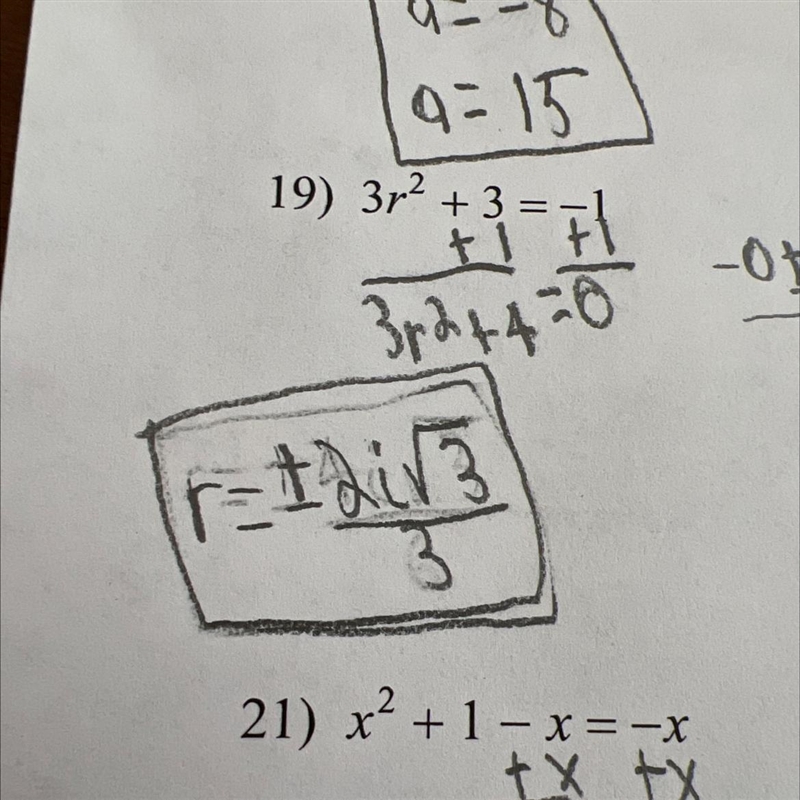 a = -8
a = 15
19) 3r² + 3 = -1
+1 +1
3r2+4 = 0
-0±
r = ± 2i√3
3
21) x² + 1 - x = -x
+x +x